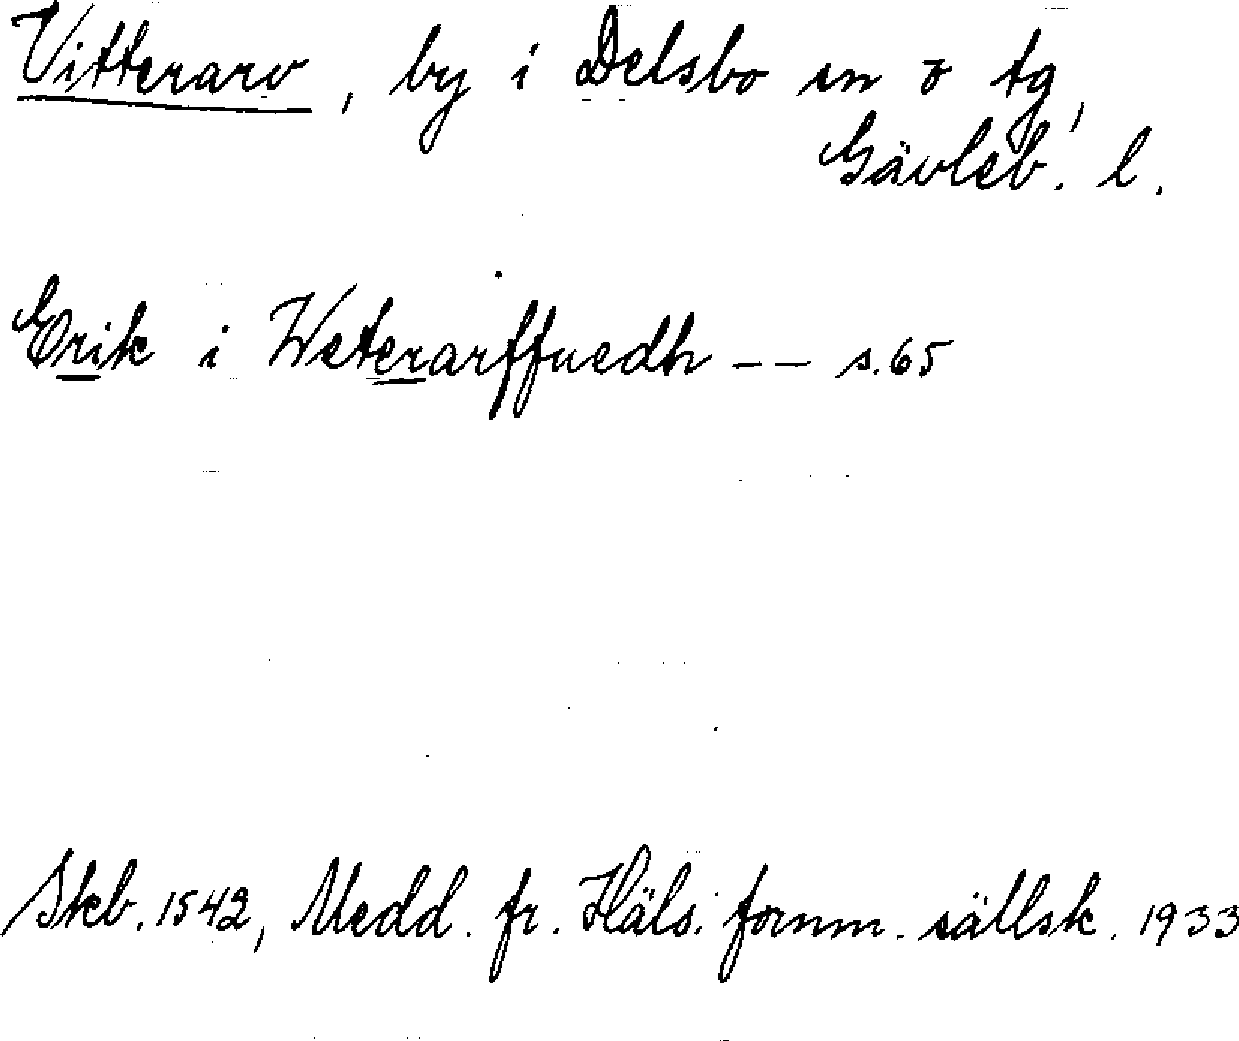 Vitterarv, by i Delsbo sn o tg,
Gävleb. l.
Erik i Weterarffuedh -- s. 65
Skb. 1542, Medd. fr. Häls. fornm. sällsk. 1933